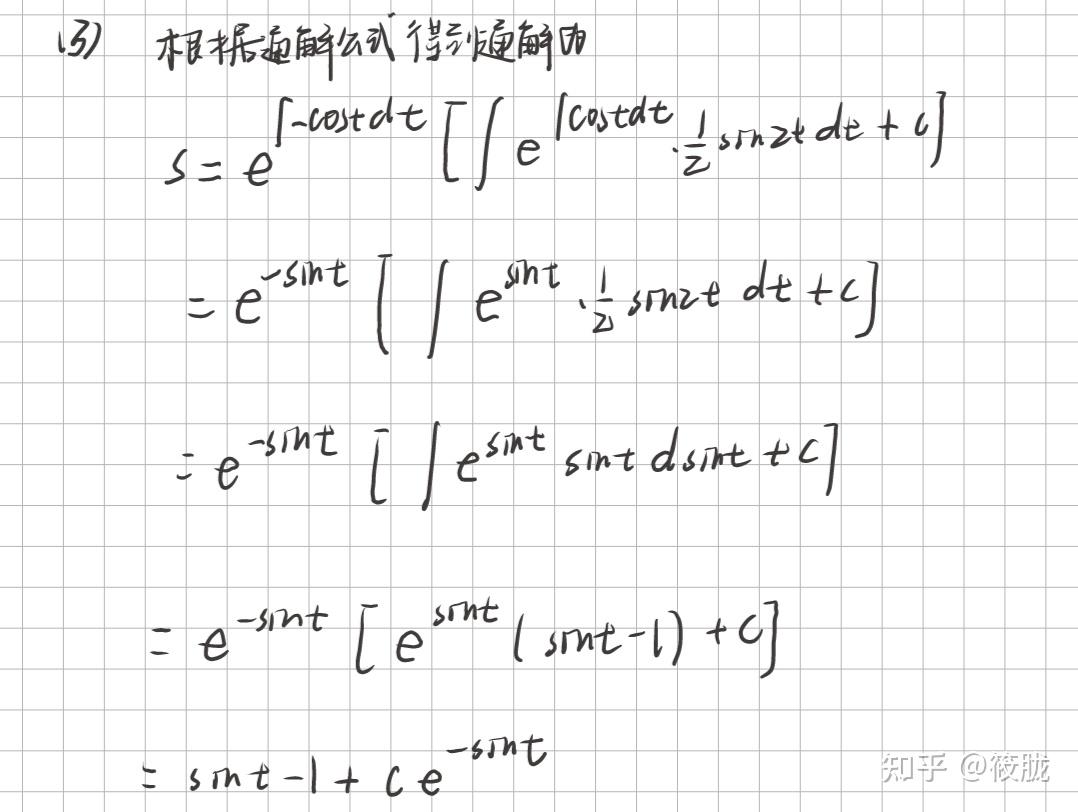 (3) 根据通解公式得到通解为
s = e^{∫-costdt} [∫ e^{∫costdt} · \frac{1}{2} sin2t dt + c]
= e^{-sint} [∫ e^{sint} · \frac{1}{2} sin2t dt + c]
= e^{-sint} [∫ e^{sint} sint dsint + c]
= e^{-sint} [e^{sint} (sint-1) + c]
= sint-1 + c e^{-sint}
知乎 @筱胧